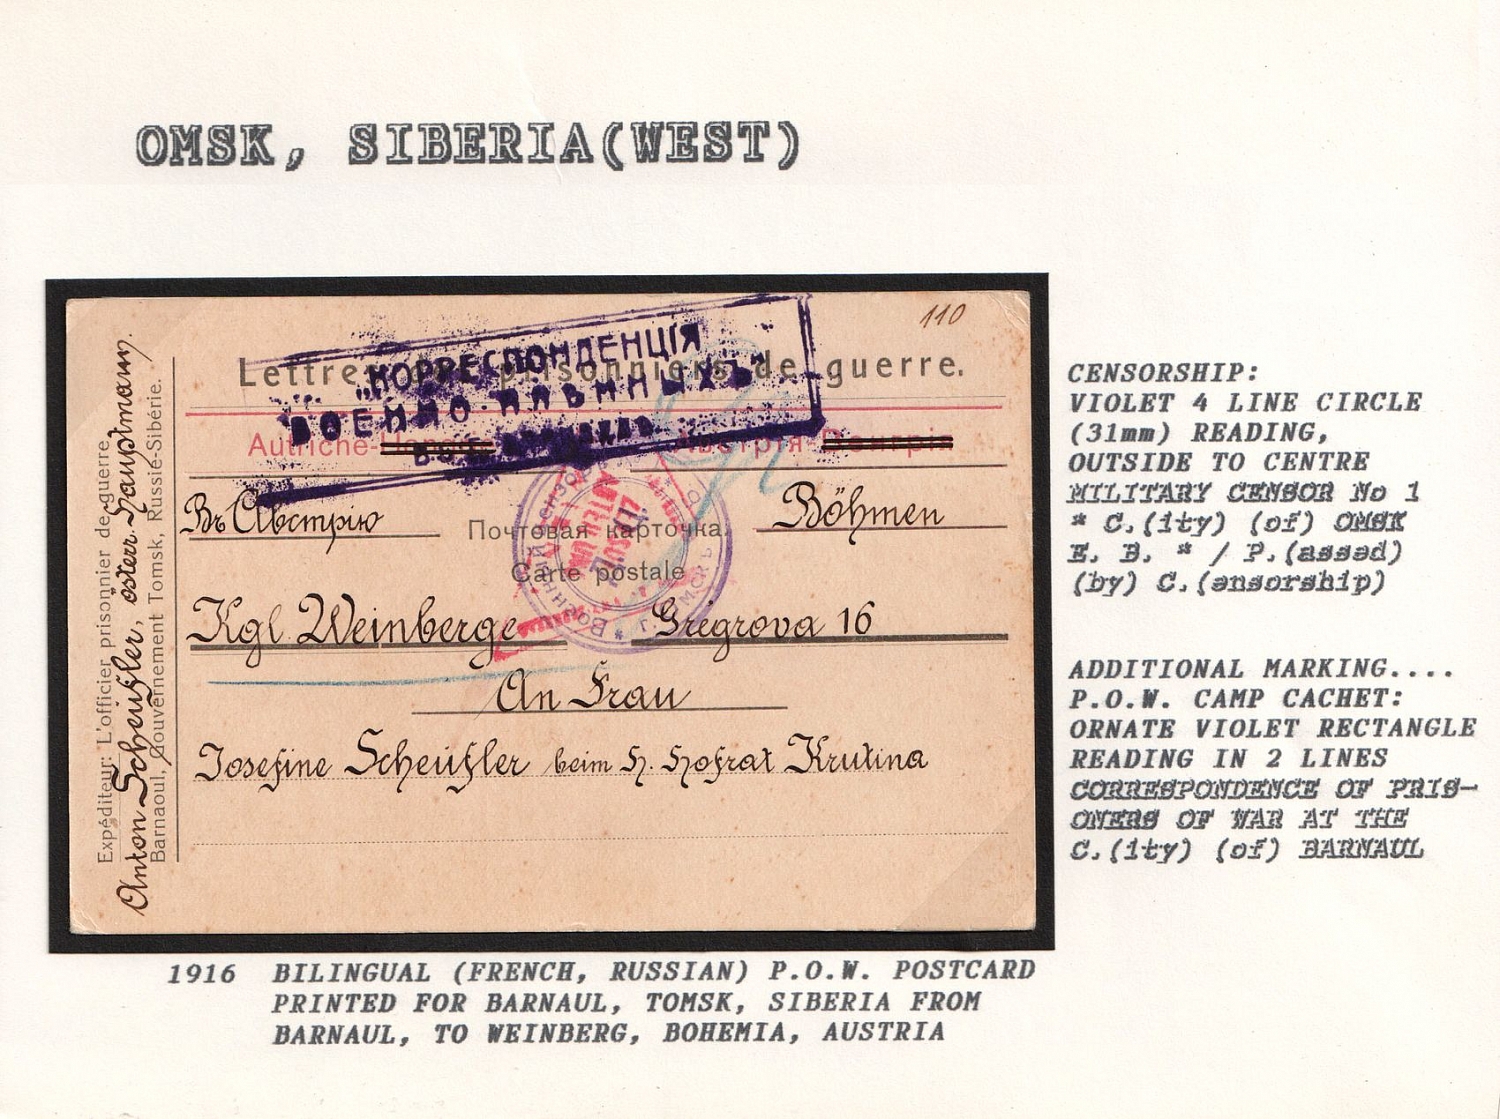 OMSK, SIBERIA(WEST)
110
Lettre prisonniers de guerre.
„КОРРЕСПОНДЕНЦІЯ
ВОЕННО-ПЛѢННЫХЪ"
Autriche-Hongrie Австрія-Венгрія
Въ Австрію Böhmen
Почтовая карточка.
Carte postale
Kgl. Weinberge Gregrova 16
An Frau
Josefine Scheufler beim H. Hofrat Krutina
Expéditeur: L'officier prisonnier de guerre
Anton Scheufler, österr. Hauptmann.
Barnaoul, gouvernement Tomsk, Russie-Sibérie.
CENSORSHIP:
VIOLET 4 LINE CIRCLE
(31mm) READING,
OUTSIDE TO CENTRE
MILITARY CENSOR No 1
* C.(ity) (of) OMSK
E. B. * / P.(assed)
(by) C.(ensorship)
ADDITIONAL MARKING....
P.O.W. CAMP CACHET:
ORNATE VIOLET RECTANGLE
READING IN 2 LINES
CORRESPONDENCE OF PRIS-
ONERS OF WAR AT THE
C.(ity) (of) BARNAUL
1916 BILINGUAL (FRENCH, RUSSIAN) P.O.W. POSTCARD
PRINTED FOR BARNAUL, TOMSK, SIBERIA FROM
BARNAUL, TO WEINBERG, BOHEMIA, AUSTRIA